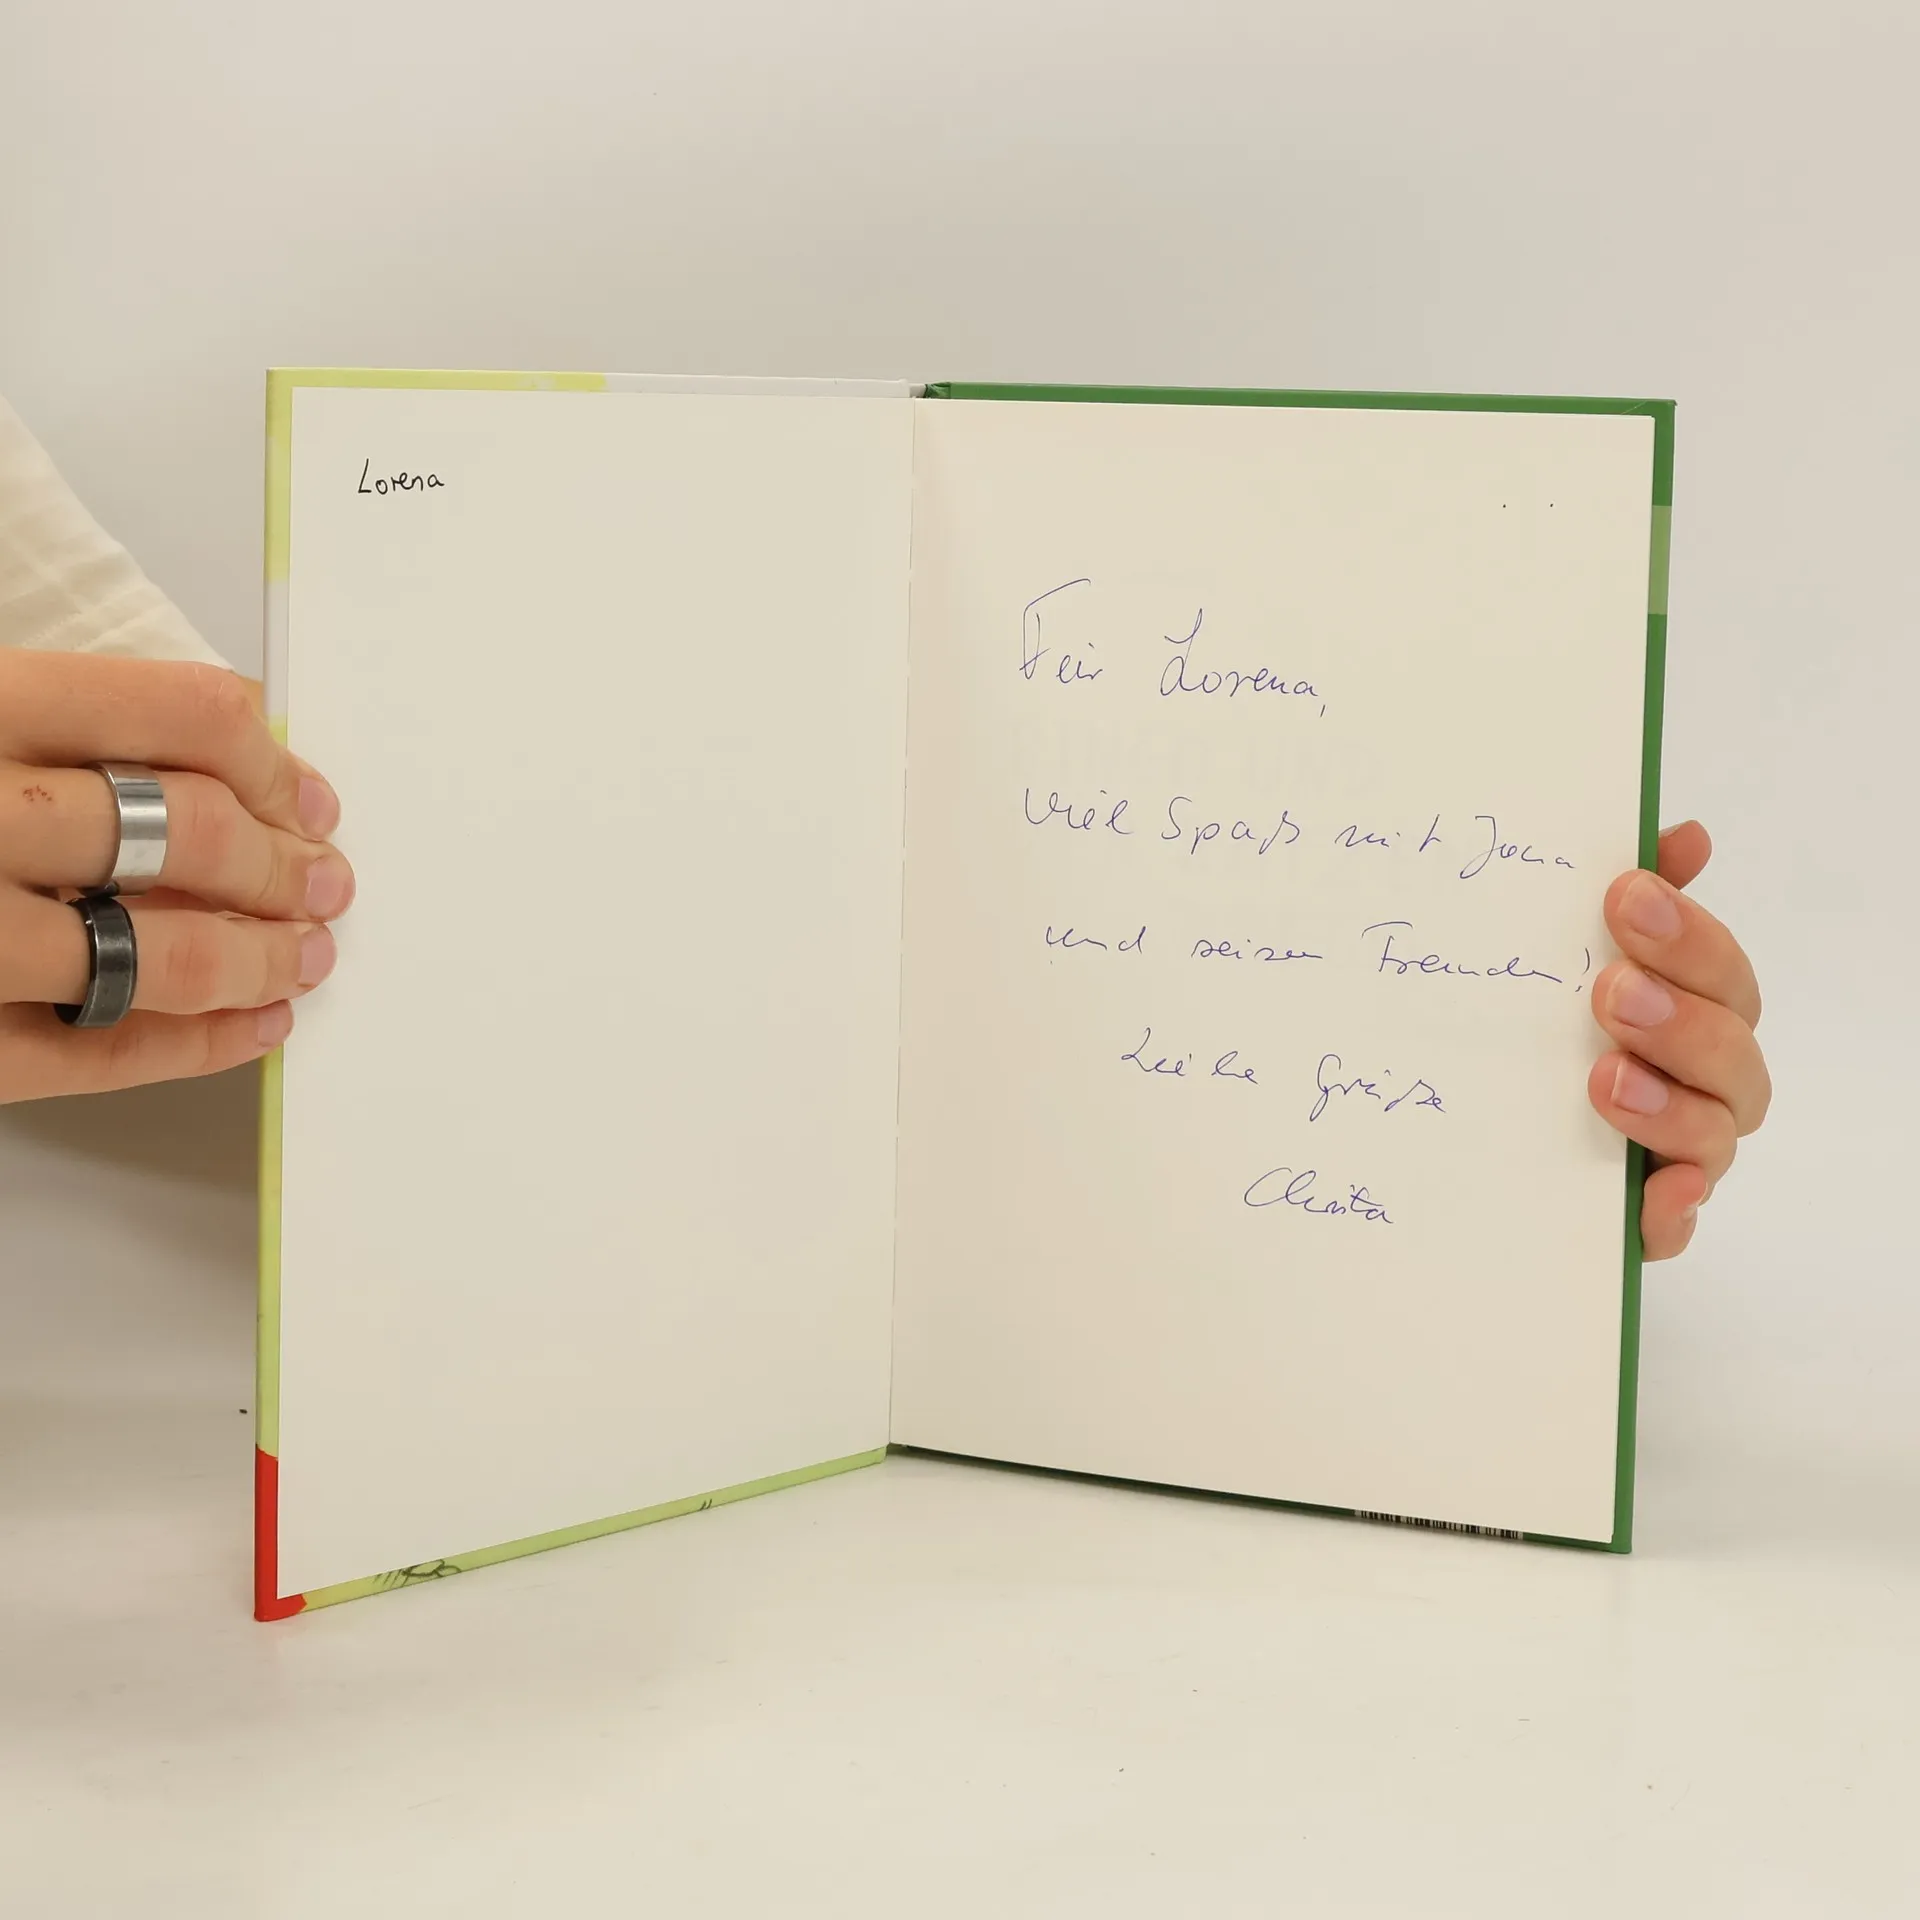 Lorena
Für Lorena,
viel Spaß mit Jona
und seinen Freunden!
Liebe Grüße
Christa